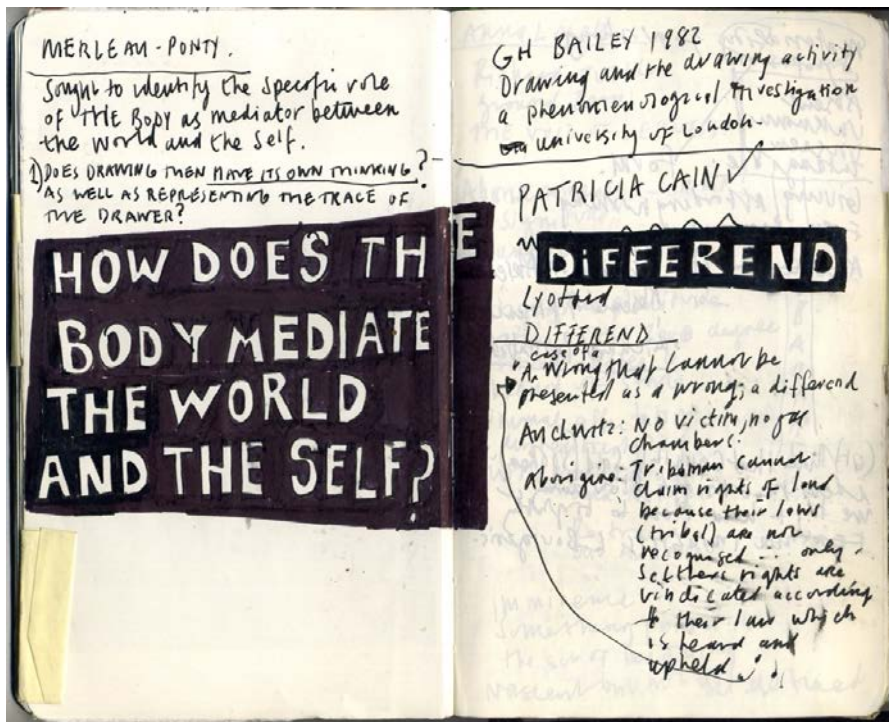 MERLEAU-PONTY.
Sought to identify the specific role
of THE BODY as mediator between
the world and the self.
1) DOES DRAWING THEN HAVE ITS OWN THINKING?
AS WELL AS REPRESENTING THE TRACE OF
THE DRAWER?
HOW DOES THE
BODY MEDIATE
THE WORLD
AND THE SELF?
GH BAILEY 1982
Drawing and the drawing activity
a phenomenological investigation
university of London.
PATRICIA CAIN
DiFFEREND
Lyotard
DIFFEREND
case of a
"A wrong that cannot be
presented as a wrong; a differend
: No victim, no gas
chambers.
aborigine: Tribsman cannot
claim rights of land
because their laws
(tribal) are not
recognised... only
settlers rights are
vindicated according
to their law which
is heard and
upheld..!